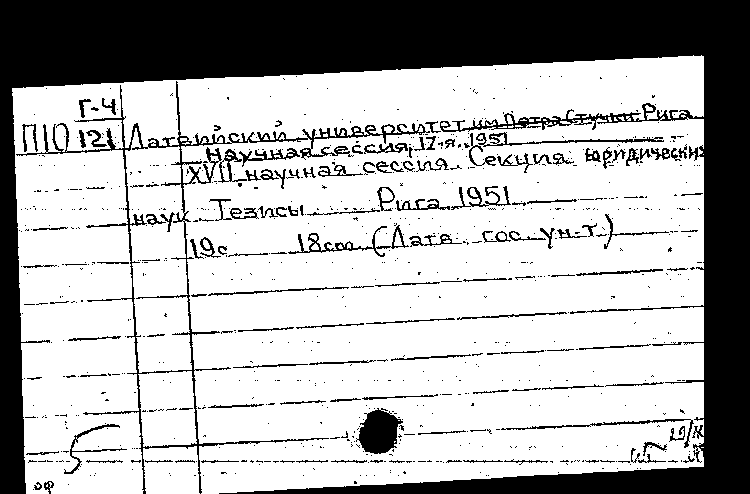 Г-4
П10 121 Латвийский университет им Петра Стучки. Рига
научная сессия, 17-я, 1951
XVII научная сессия. Секция юридических
наук. Тезисы. Рига 1951
19с 18cm (Латв. гос. ун-т.)
5
оф